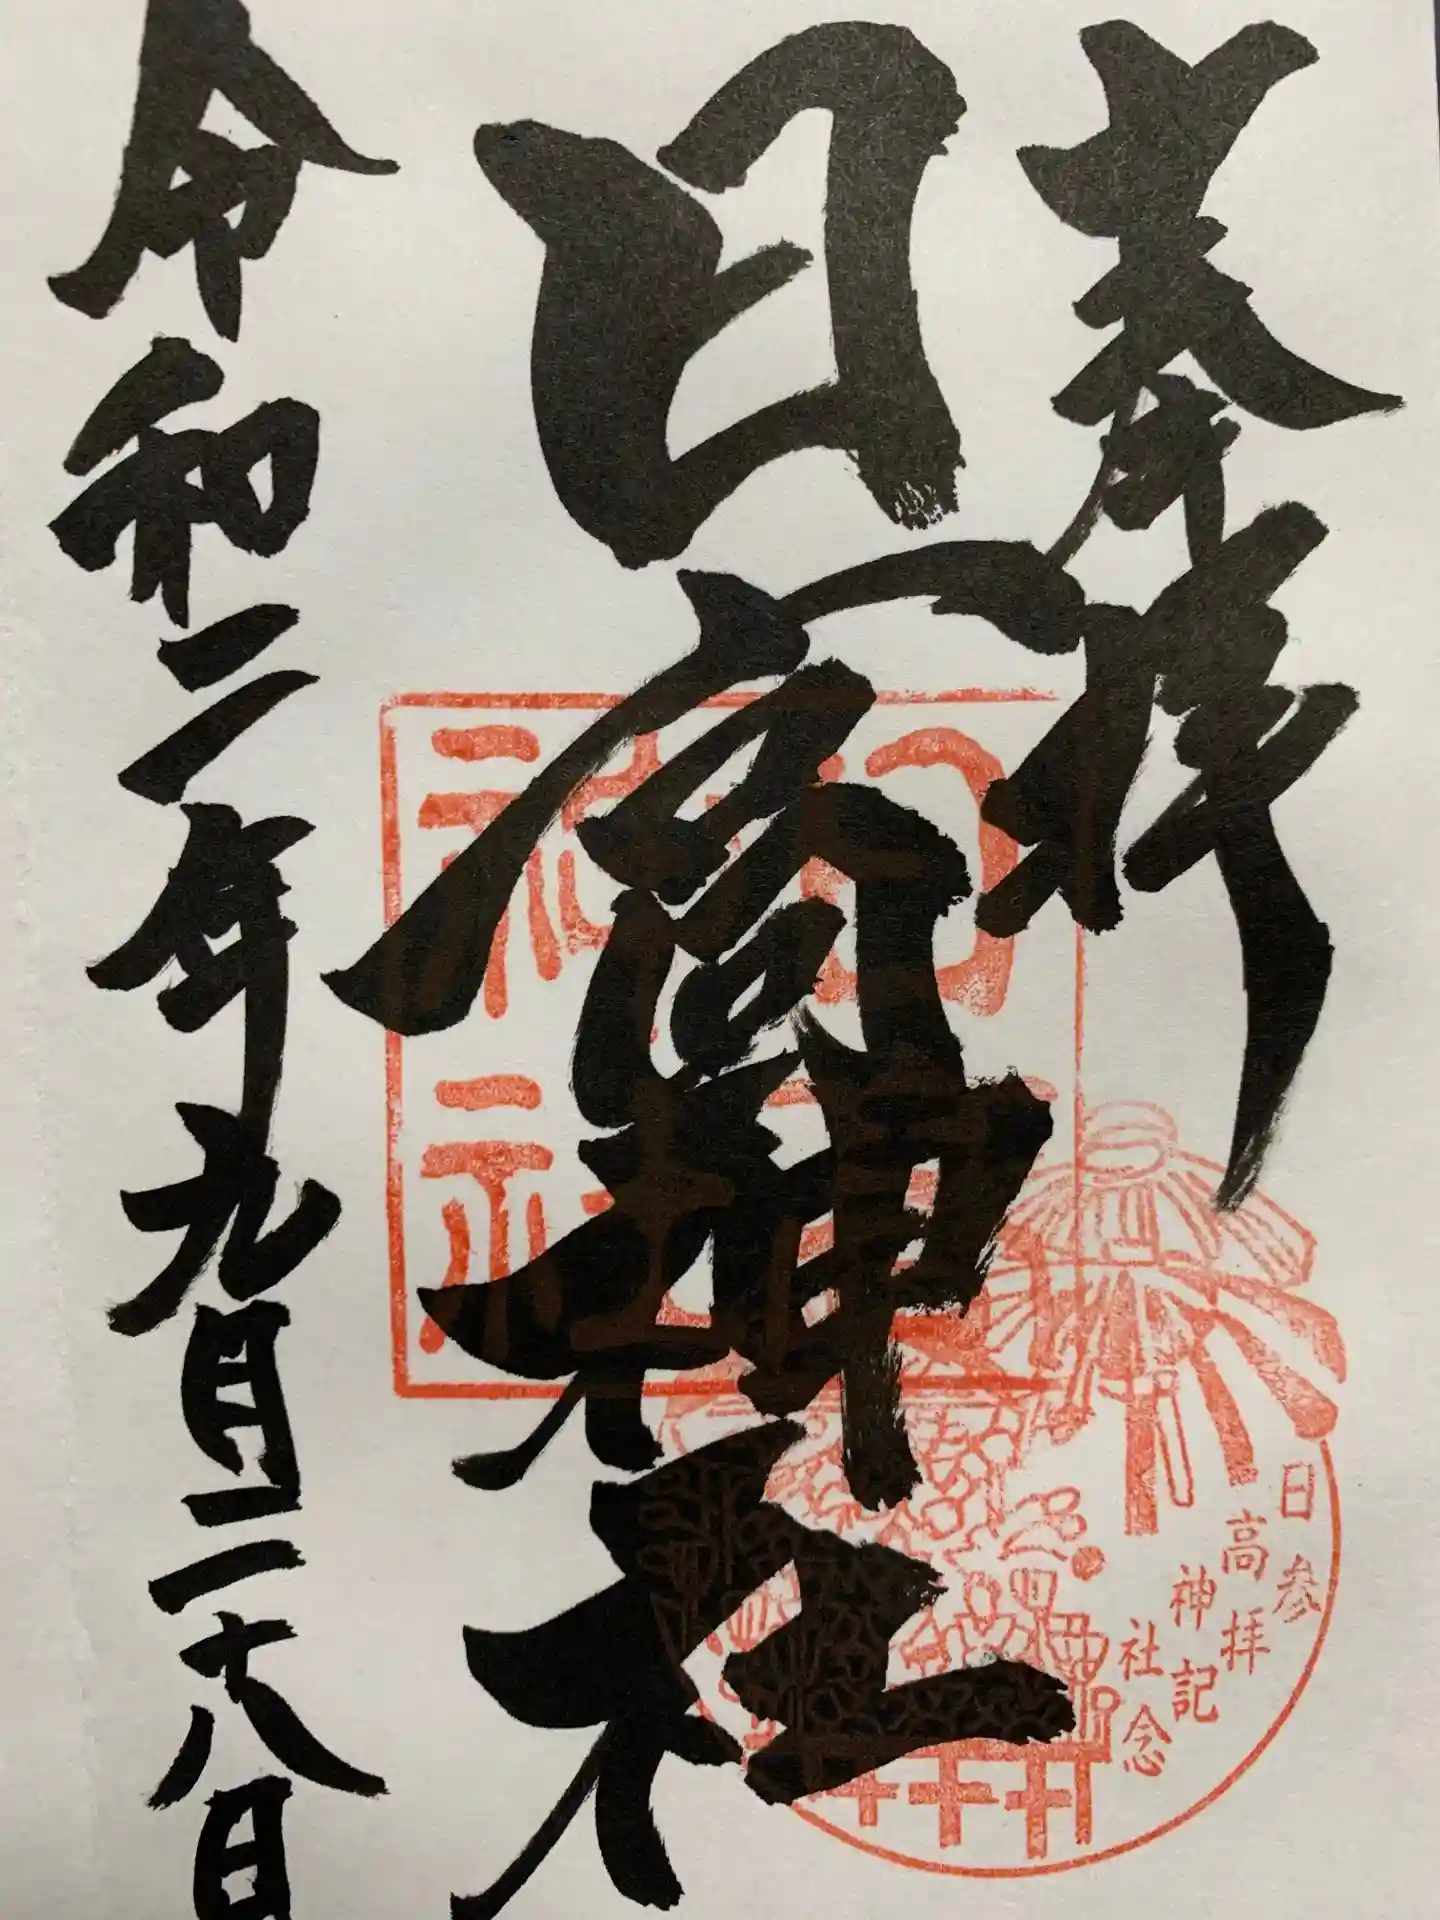 奉拝
日高神社
令和二年九月二十八日
日高神社
日高神社
参拝記念